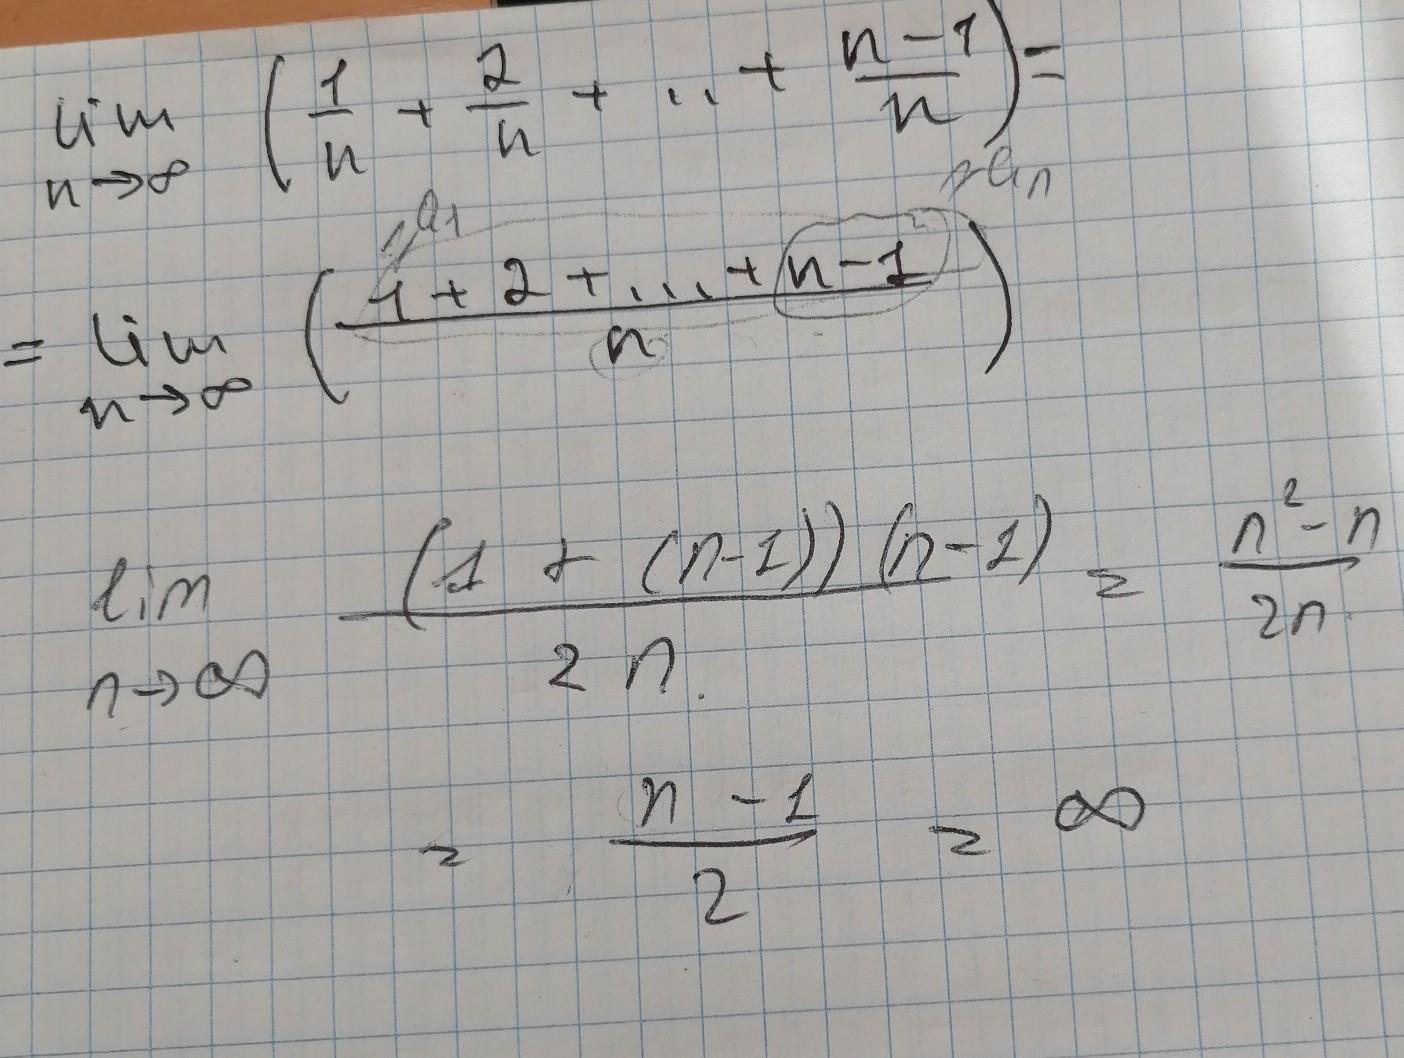 lim n→∞ (1/n + 2/n + ... + n-1/n) =
a₁ aₙ
= lim n→∞ (1 + 2 + ... + n-1 / n)
lim n→∞ (1 + (n-1)) (n-1) / 2n. = n² - n / 2n.
= n - 1 / 2 = ∞